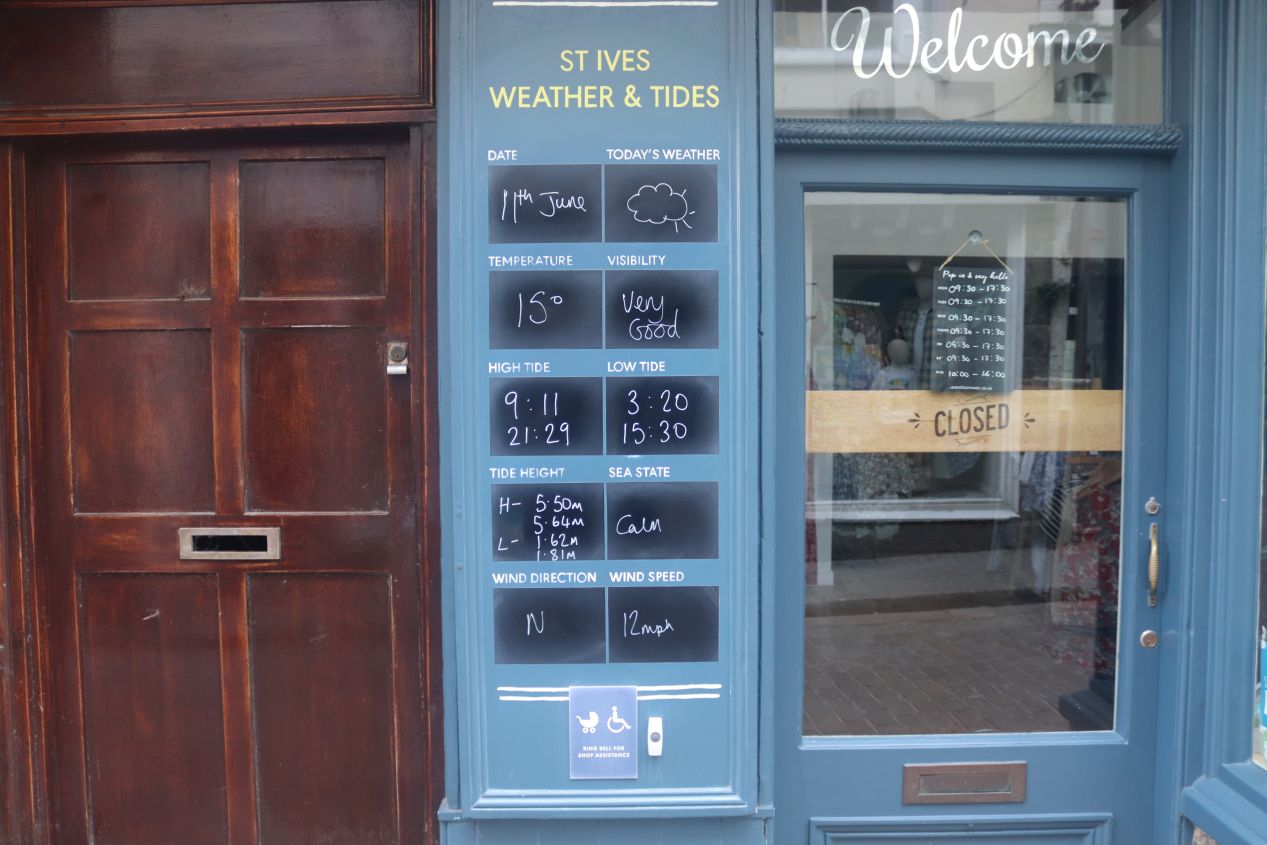 ST IVES
WEATHER & TIDES
DATE
11th June
TODAY'S WEATHER
TEMPERATURE
15°
VISIBILITY
Very
Good
HIGH TIDE
9:11
21:29
LOW TIDE
3:20
15:30
TIDE HEIGHT
H- 5.50m
5.64m
L- 1.62m
1.81m
SEA STATE
Calm
WIND DIRECTION
N
WIND SPEED
12mph
RING BELL FOR
SHOP ASSISTANCE
Welcome
Pop in & say hello
MON 09:30 - 17:30
TUES 09:30 - 17:30
WED 09:30 - 17:30
THURS 09:30 - 17:30
FRI 09:30 - 17:30
09:30 - 17:30
10:00 - 16:00
CLOSED